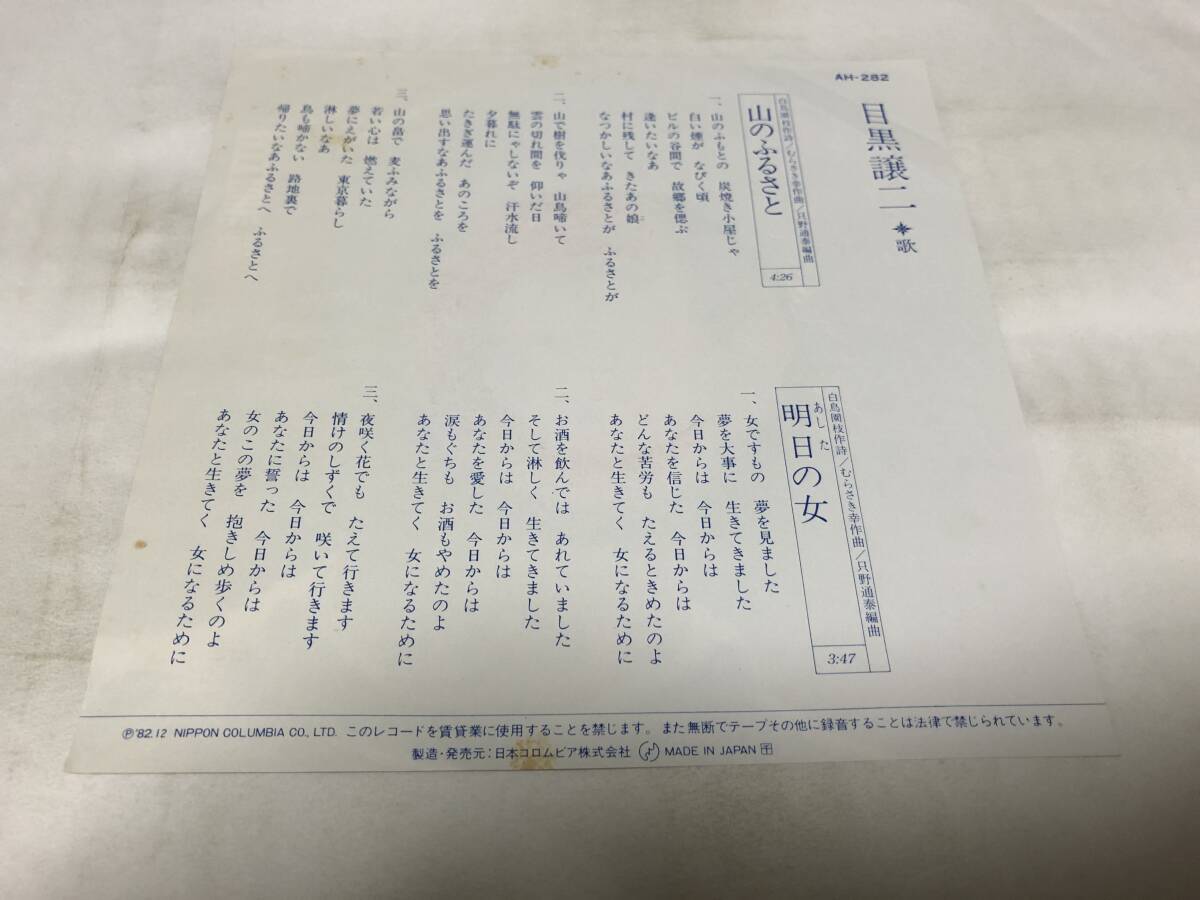 AH-282
目黒譲二 歌
白鳥園枝作詩/むらさき幸作曲/只野通泰編曲
山のふるさと
4:26
一、山のふもとの 炭焼き小屋じゃ
白い煙が なびく頃
ビルの谷間で 故郷を偲ぶ
逢いたいなあ
村に残して きたあの娘
なつかしいなあふるさとが ふるさとが
二、山で樹を伐りゃ 山鳥啼いて
雲の切れ間を 仰いだ日
無駄にゃしないぞ 汗水流し
夕暮れに
たきぎ運んだ あのころを
思い出すなあふるさとを ふるさとを
三、山の畠で 麦ふみながら
若い心は 燃えていた
夢にえがいた 東京暮らし
淋しいなあ
鳥も啼かない 路地裏で
帰りたいなあふるさとへ ふるさとへ
白鳥園枝作詩/むらさき幸作曲/只野通泰編曲
あした
明日の女
3:47
一、女ですもの 夢を見ました
夢を大事に 生きてきました
今日からは 今日からは
あなたを信じた 今日からは
どんな苦労も たえるときめたのよ
あなたと生きてく 女になるために
二、お酒を飲んでは あれていました
そして淋しく 生きてきました
今日からは 今日からは
あなたを愛した 今日からは
涙もぐちも お酒もやめたのよ
あなたと生きてく 女になるために
三、夜咲く花でも たえて行きます
情けのしずくで 咲いて行きます
今日からは 今日からは
あなたに誓った 今日からは
女のこの夢を 抱きしめ歩くのよ
あなたと生きてく 女になるために
Ⓟ'82.12 NIPPON COLUMBIA CO., LTD. このレコードを賃貸業に使用することを禁じます。また無断でテープその他に録音することは法律で禁じられています。
製造・発売元:日本コロムビア株式会社 MADE IN JAPAN